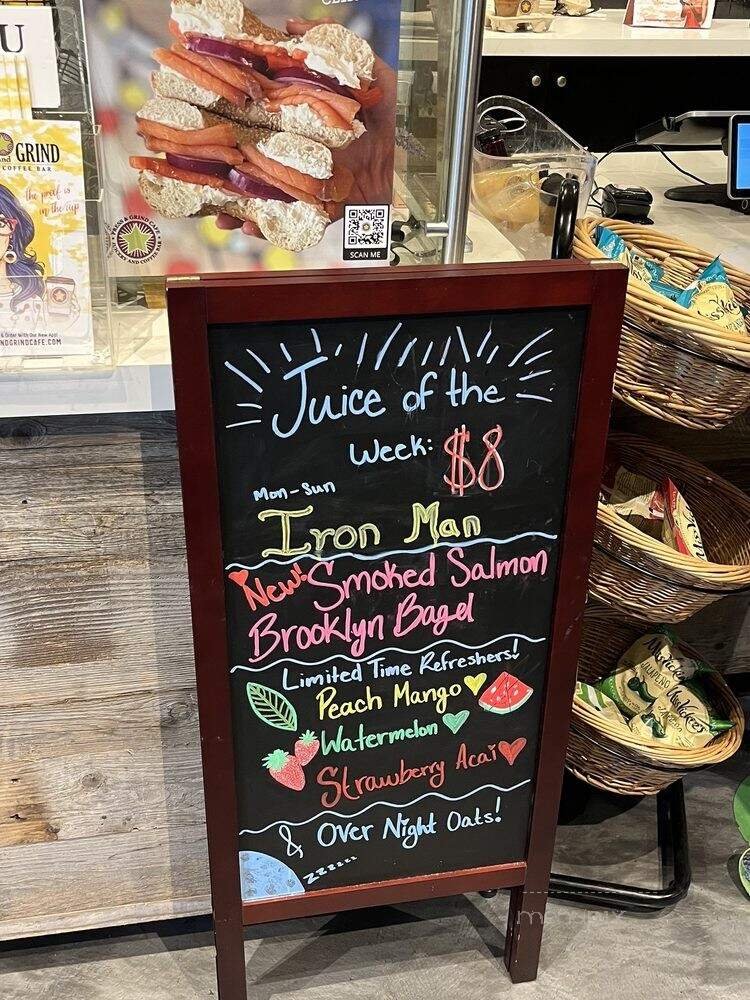 U
GRIND
COFFEE BAR
the proof is
in the cup
SCAN ME
Juice of the
Week: $8
Mon-Sun
Iron Man
New! Smoked Salmon
Brooklyn Bagel
Limited Time Refreshers!
Peach Mango
Watermelon
Strawberry Acai
& Over Night Oats!
zzzzzz